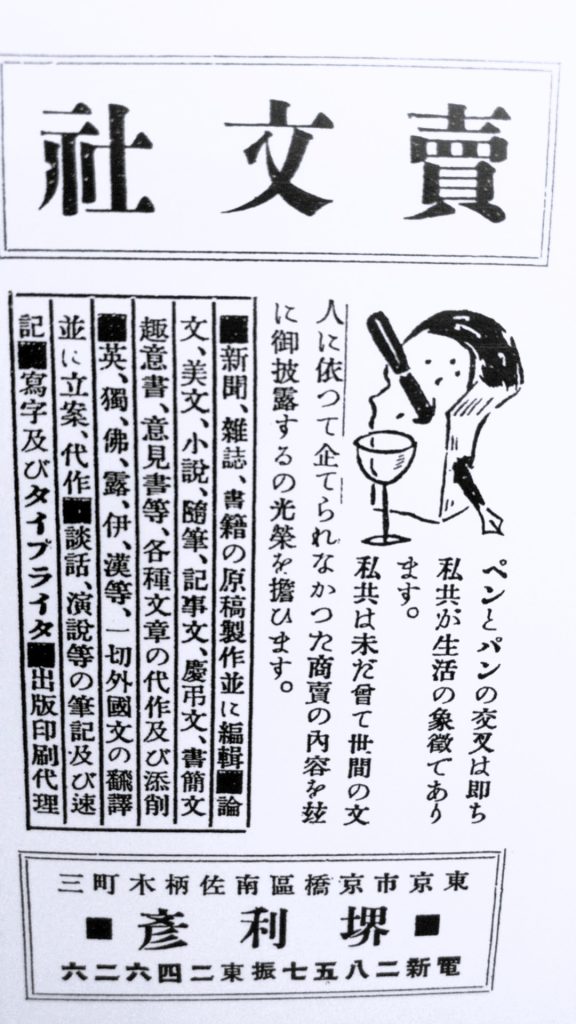 賣文社
ペンとパンの交叉は即ち
私共が生活の象徴であり
ます。
私共は未だ曾て世間の文
人に依つて企てられなかつた商賣の內容を玆
に御披露するの光榮を擔ひます。
■新聞、雜誌、書籍の原稿製作並に編輯■論
文、美文、小說、隨筆、記事文、慶弔文、書簡文
趣意書、意見書等、各種文章の代作及び添削
■英、獨、佛、露、伊、漢等、一切外國文の飜譯
並に立案、代作■談話、演說等の筆記及び速
記■寫字及びタイプライタ■出版印刷代理
東京市京橋區南佐柄木町三
■堺利彥■
電新二八五七振東二四六二六